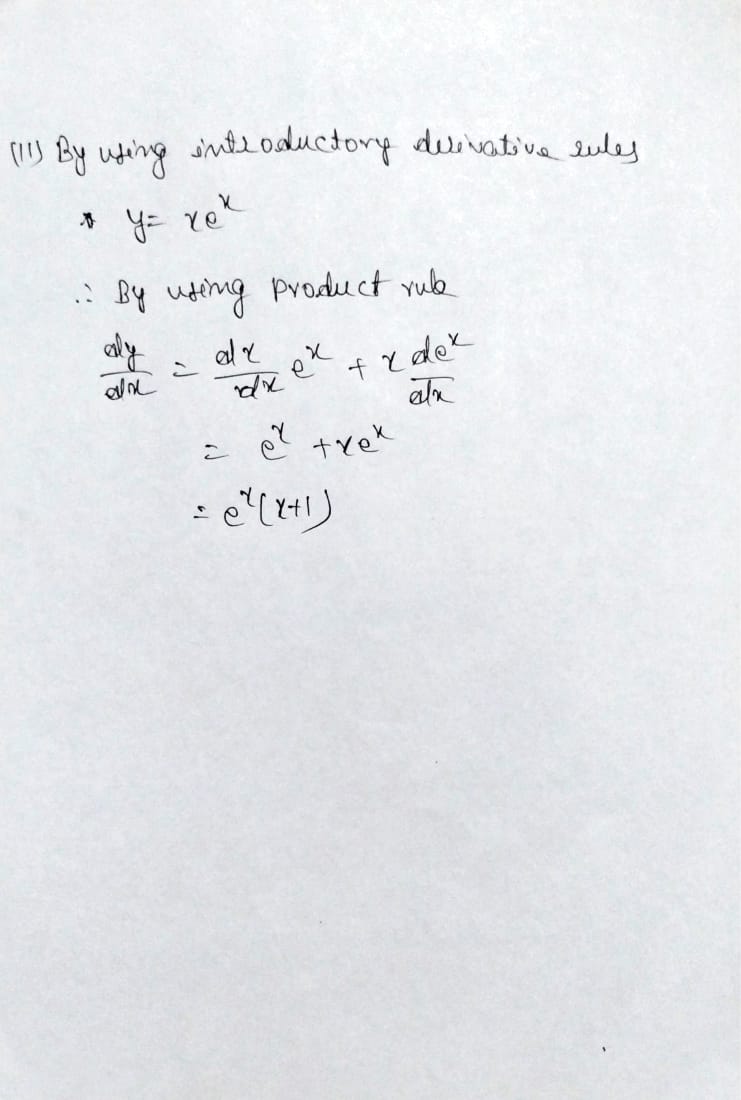 (11) By using introductory derivative rules
* y= xe^x
∴ By using product rule
dy/dx = dx/dx e^x + x de^x/dx
= e^x + xe^x
= e^x(x+1)